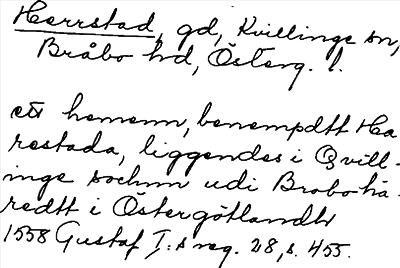 Herrstad, gd, Kvillinge sn,
Bråbo hd, Österg. l.
ett hemenn, benempdtt Ha
restada, liggendes i Qvill-
inge sochnn udi Brabo hä-
redtt i Östergötlandh
1558 Gustaf I:s reg. 28, s. 455.